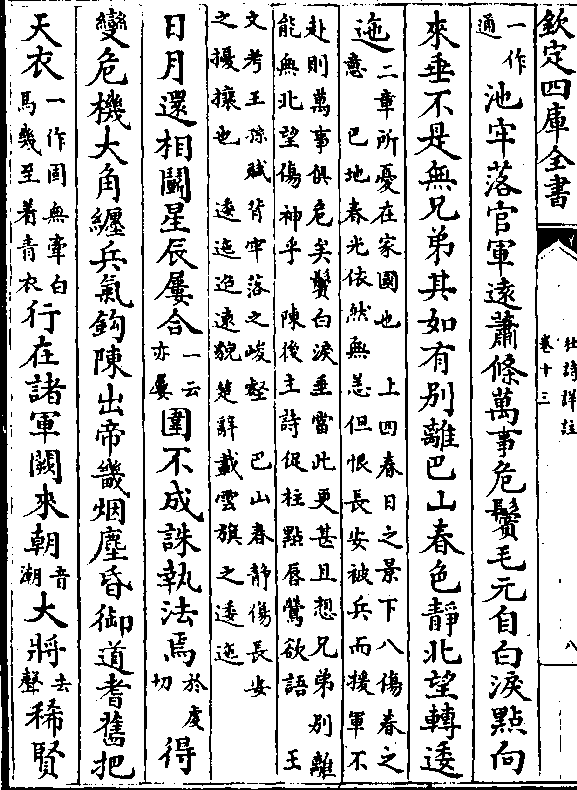 欽定四庫全書
杜詩詳註
卷十三
八
一作通池牢落官軍遠蕭條萬事危鬢毛元自白淚點向
來垂不是無兄弟其如有別離巴山春色靜北望轉逶
迤二章所憂在家國也　上四春日之景下八傷春之
意　巴地春光依然無恙但恨長安被兵而援軍不
赴則萬事俱危矣鬢白淚垂當此更甚且想兄弟別離
能無北望傷神乎　陳後主詩促柱點唇鶯欲語　王
文考王孫賦背牢落之峻壑　巴山春靜傷長安
之擾攘也　逶迤迤遠貌楚辭載雲旗之逶迤
日月還相鬬星辰屢合一云亦屢圍不成誅執法焉於虔切得
變危機大角纏兵氣鈎陳出帝畿烟塵昏御道耆舊把
天衣一作固無牽白馬幾至着青衣行在諸軍闕來朝音潮大將去聲稀賢